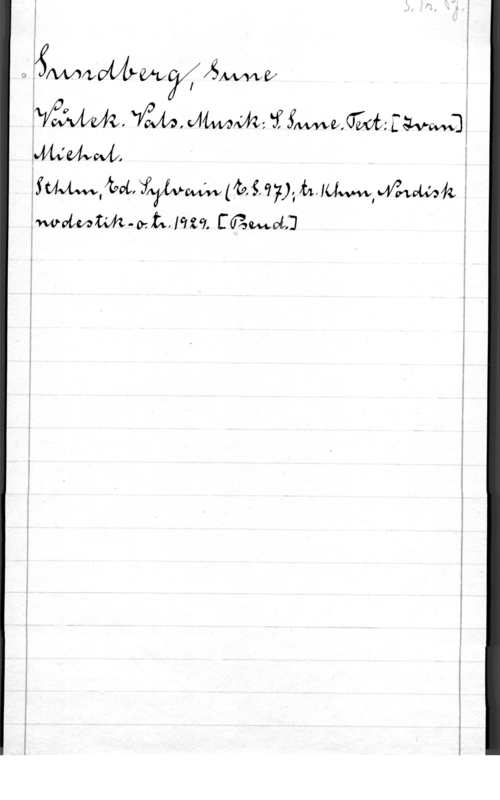 S. Tr.
Sundberg, Sune
Vårlek. Vals. Musik: S. Sune. Text: [Ivan]
Michal.
Sthlm, Ed. Sylvain (E.S. 97); tr. Khvn, Nordisk
nodestik- o. tr. 1929. [Bend.]